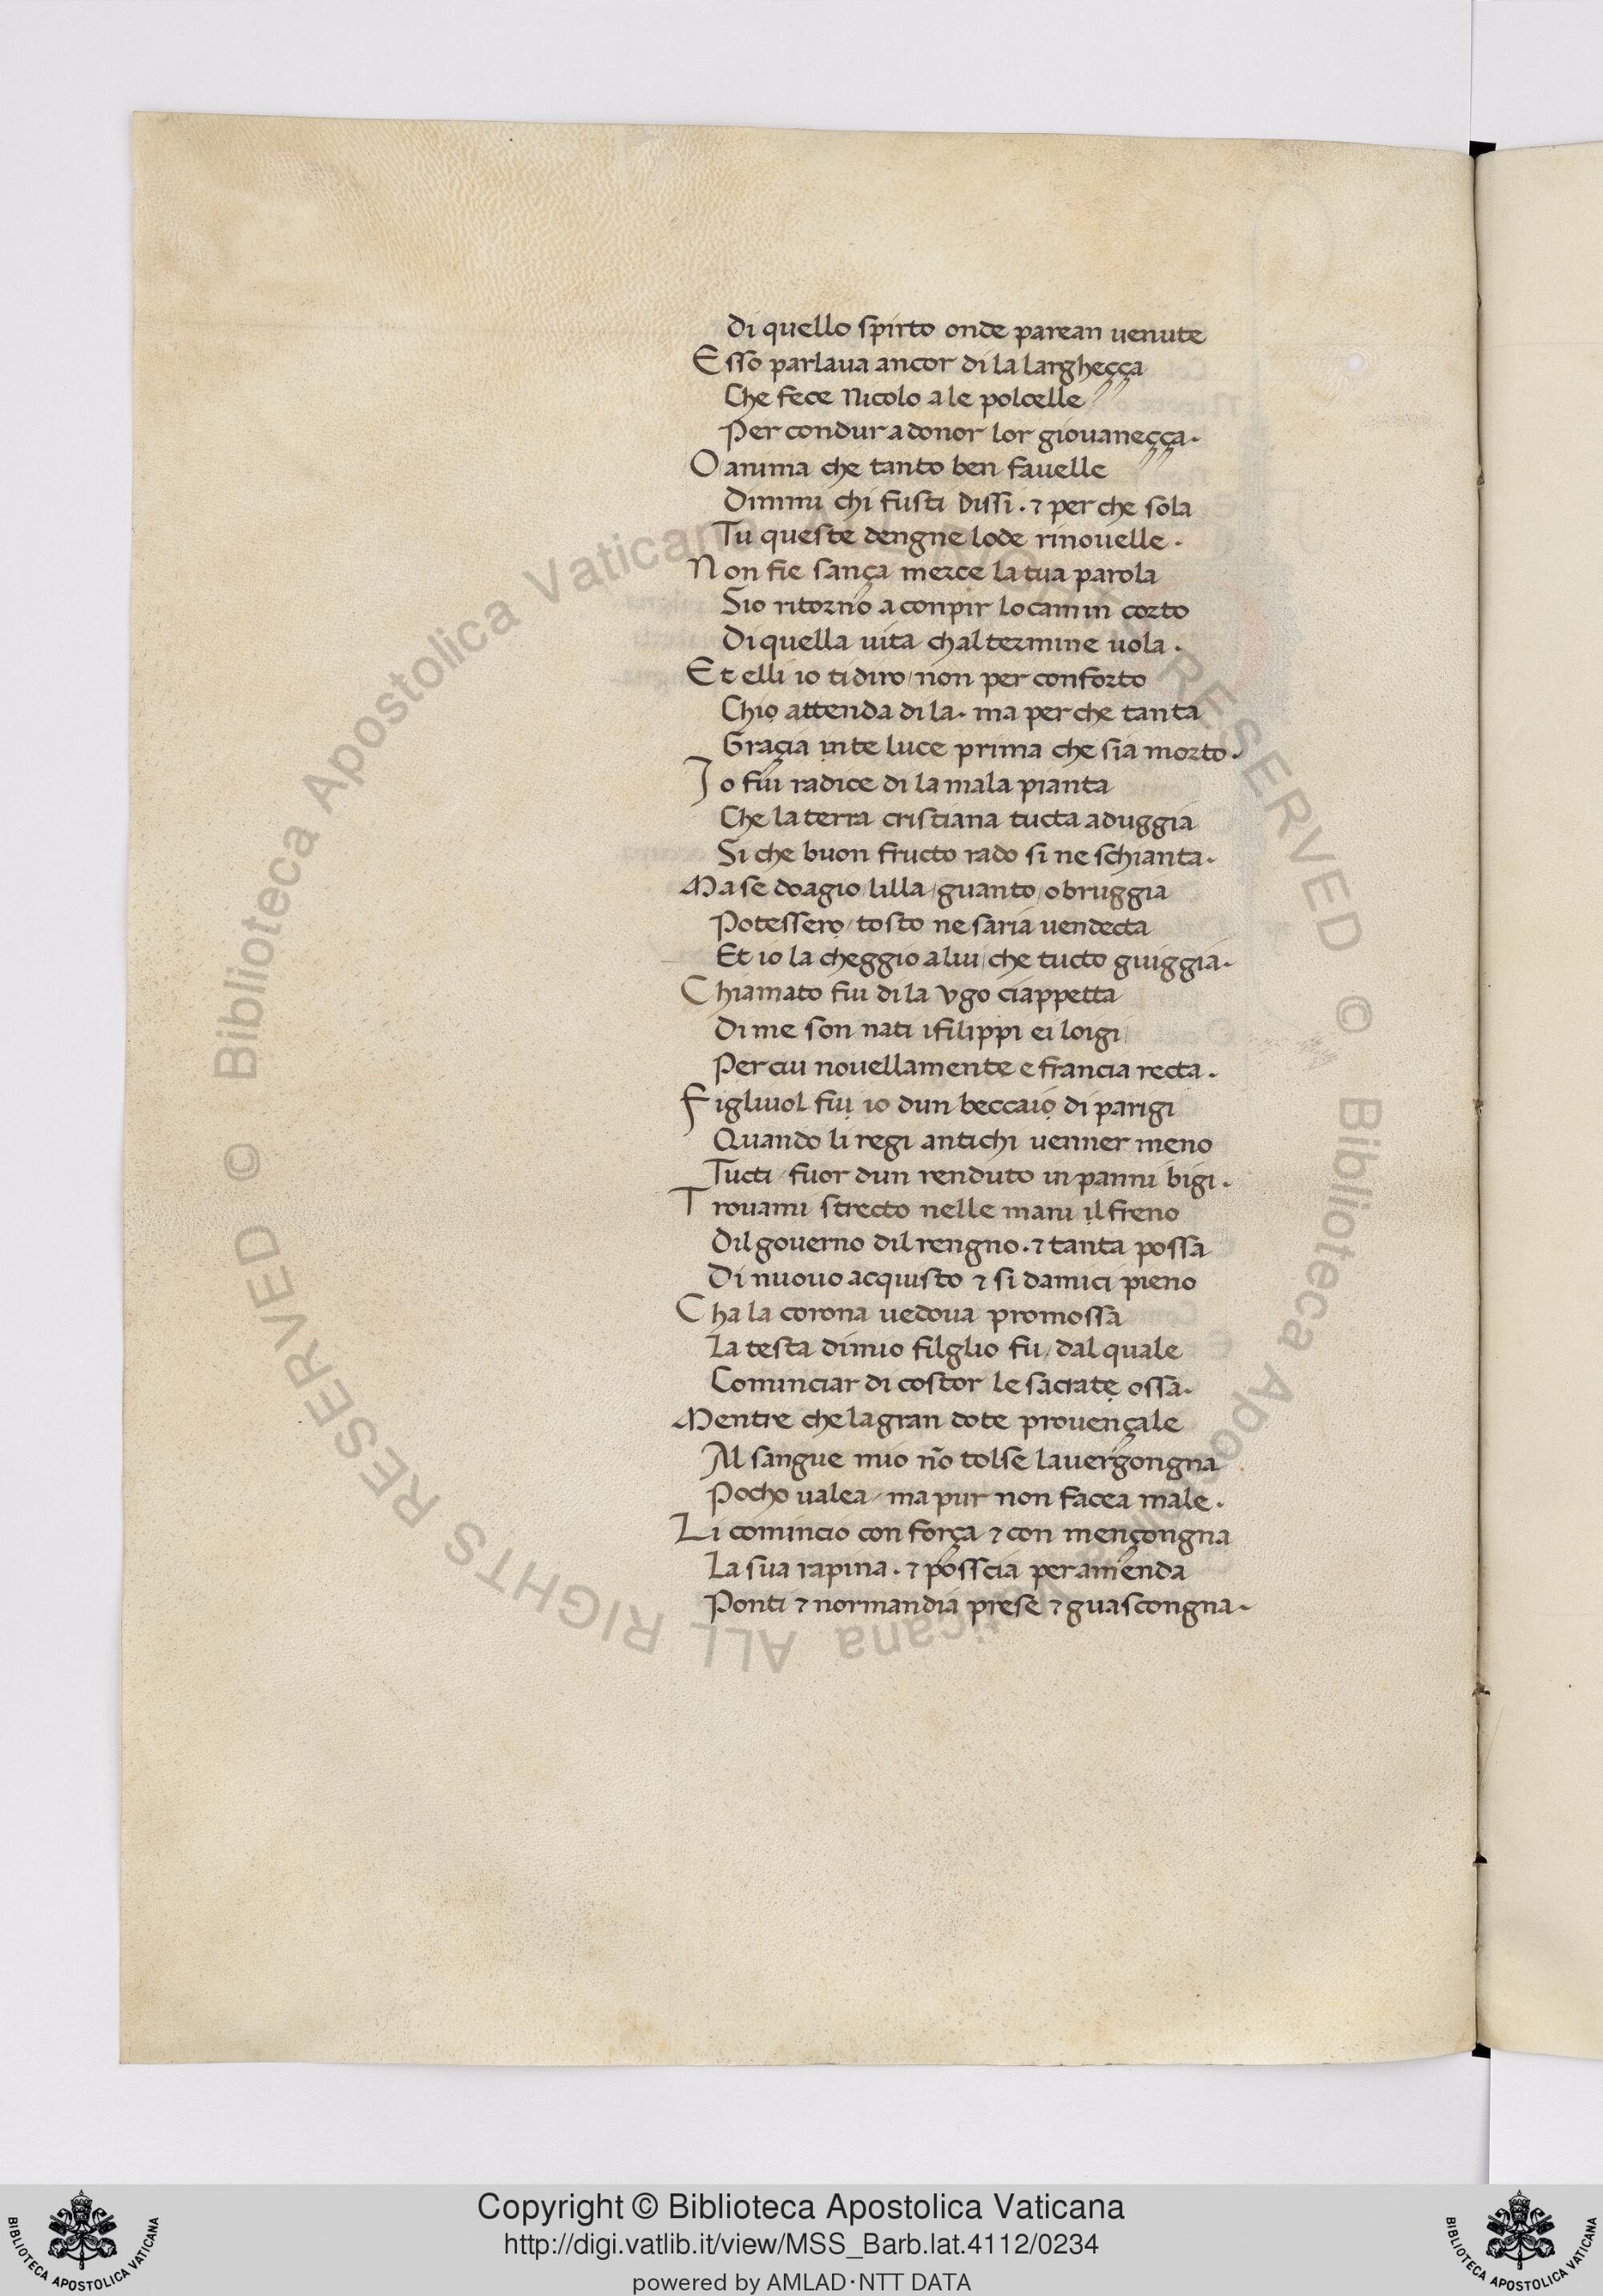 Di quello spirto onde parean uenute
Esso parlaua ancor di la larghecça
Che fece Nicolo a le polcelle
Per condur adonor lor giouanecça.
O anima che tanto ben fauelle
Dimmi chi fusti dissi. ⁊ per che sola
Tu queste dengne lode rinouelle.
Non fie sança merce la tua parola
Sio ritorno a conpir lo camin corto
Di quella uita chal termine uola.
Et elli io ti diro/ non per conforto
Chiọ attenda di la. ma per che tanta
Graçia ịnte luce prima che sia morto.
Io fui radice di la mala pianta
Che la terra cristiana tucta aduggia
Si che buon fructo rado si ne schianta.
Ma se doagio/ lilla/ guanto/ o bruggia
Potesserọ/ tosto ne saria uendecta
Et io la cheggio a lui/ che tucto giuggia.
Chiamato fui di la Vgo ciappetta
Di me son nati i filippi e i loigi
Per cui nouellamente e francia recta.
Figliuol fuị io dun beccaiọ di parigi
Quando li regi antichi uenner meno
Tucti/ fuor dun renduto in panni bigi.
Trouami strecto nelle mani ịl freno
Dil gouerno dil rengno. ⁊ tanta possa
Di nuouo acquisto ⁊ si damici pieno
Cha la corona uedoua promossa
La testa di mio filglio fu/ dal quale
Cominciar di costor le sacratẹ ossa.
Mentre che la gran dote prouençale
Al sangue mio nõ tolse la uergongna
Pocho ualea/ ma pur non facea male.
Li comincio con força ⁊ con mençongna
La sua rapina. ⁊ posscia per amenda
Ponti ⁊ normandia prese ⁊ guascongna.
© Biblioteca Apostolica Vaticana ALL RIGHTS RESERVED © Biblioteca Apostolica Vaticana ALL RIGHTS RESERVED
Copyright © Biblioteca Apostolica Vaticana
http://digi.vatlib.it/view/MSS_Barb.lat.4112/0234
powered by AMLAD·NTT DATA
BIBLIOTECA APOSTOLICA VATICANA
BIBLIOTECA APOSTOLICA VATICANA